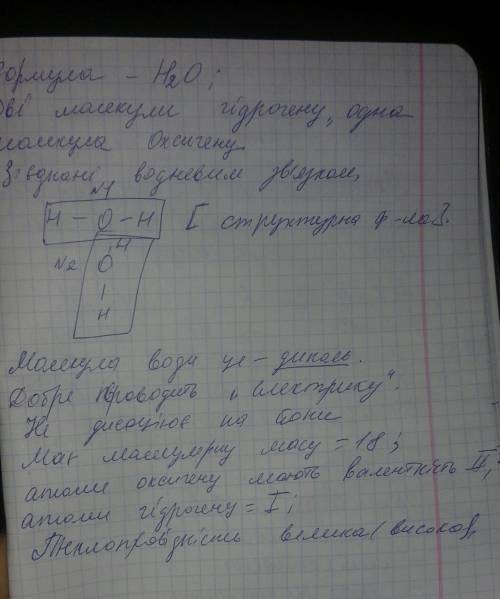 Формула – H2O;
Дві молекули гідрогену, одна
молекула Оксигену
З'єднані водневим зв'язком,
N1
H – O – H [ структурна ф-ла].
H
N2 O
H
Молекула води це – диполь.
Добре проводить „електрику“.
Не дисоціює на йони
Має молекулярну масу = 18;
атоми оксигену мають валентність II,
атоми гідрогену = I;
Теплопровідність велика(висока),